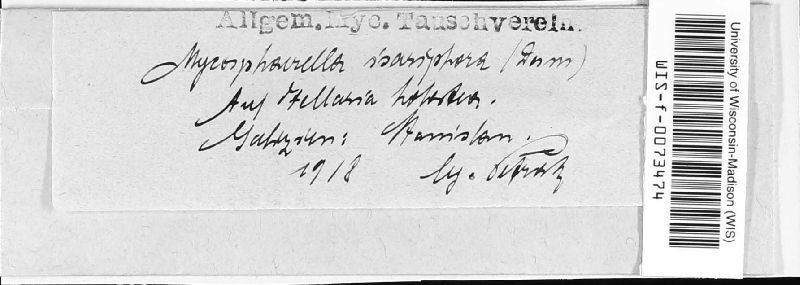 Allgem. Myc. Tauschverein.
Mycosphaerella isariphora (Desm)
Auf Stellaria holostea.
Galizien: Stanislau.
1918 leg. Petrak
University of Wisconsin-Madison (WIS)
WIS-f-0073474